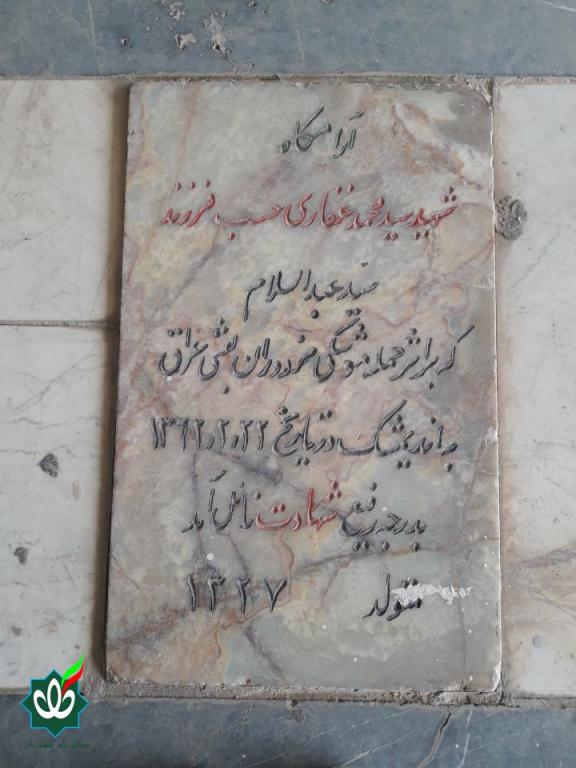 آرامگاه
شهید سید محمد غفاری حسب فرزند
سید عبدالسلام
که بر اثر حمله موشکی مزدوران بعثی عراق
به اندیمشک در تاریخ ۱۳۶۲٫۲٫۲۲
بدرجه رفیع شهادت نائل آمد
متولد ۱۳۲۷